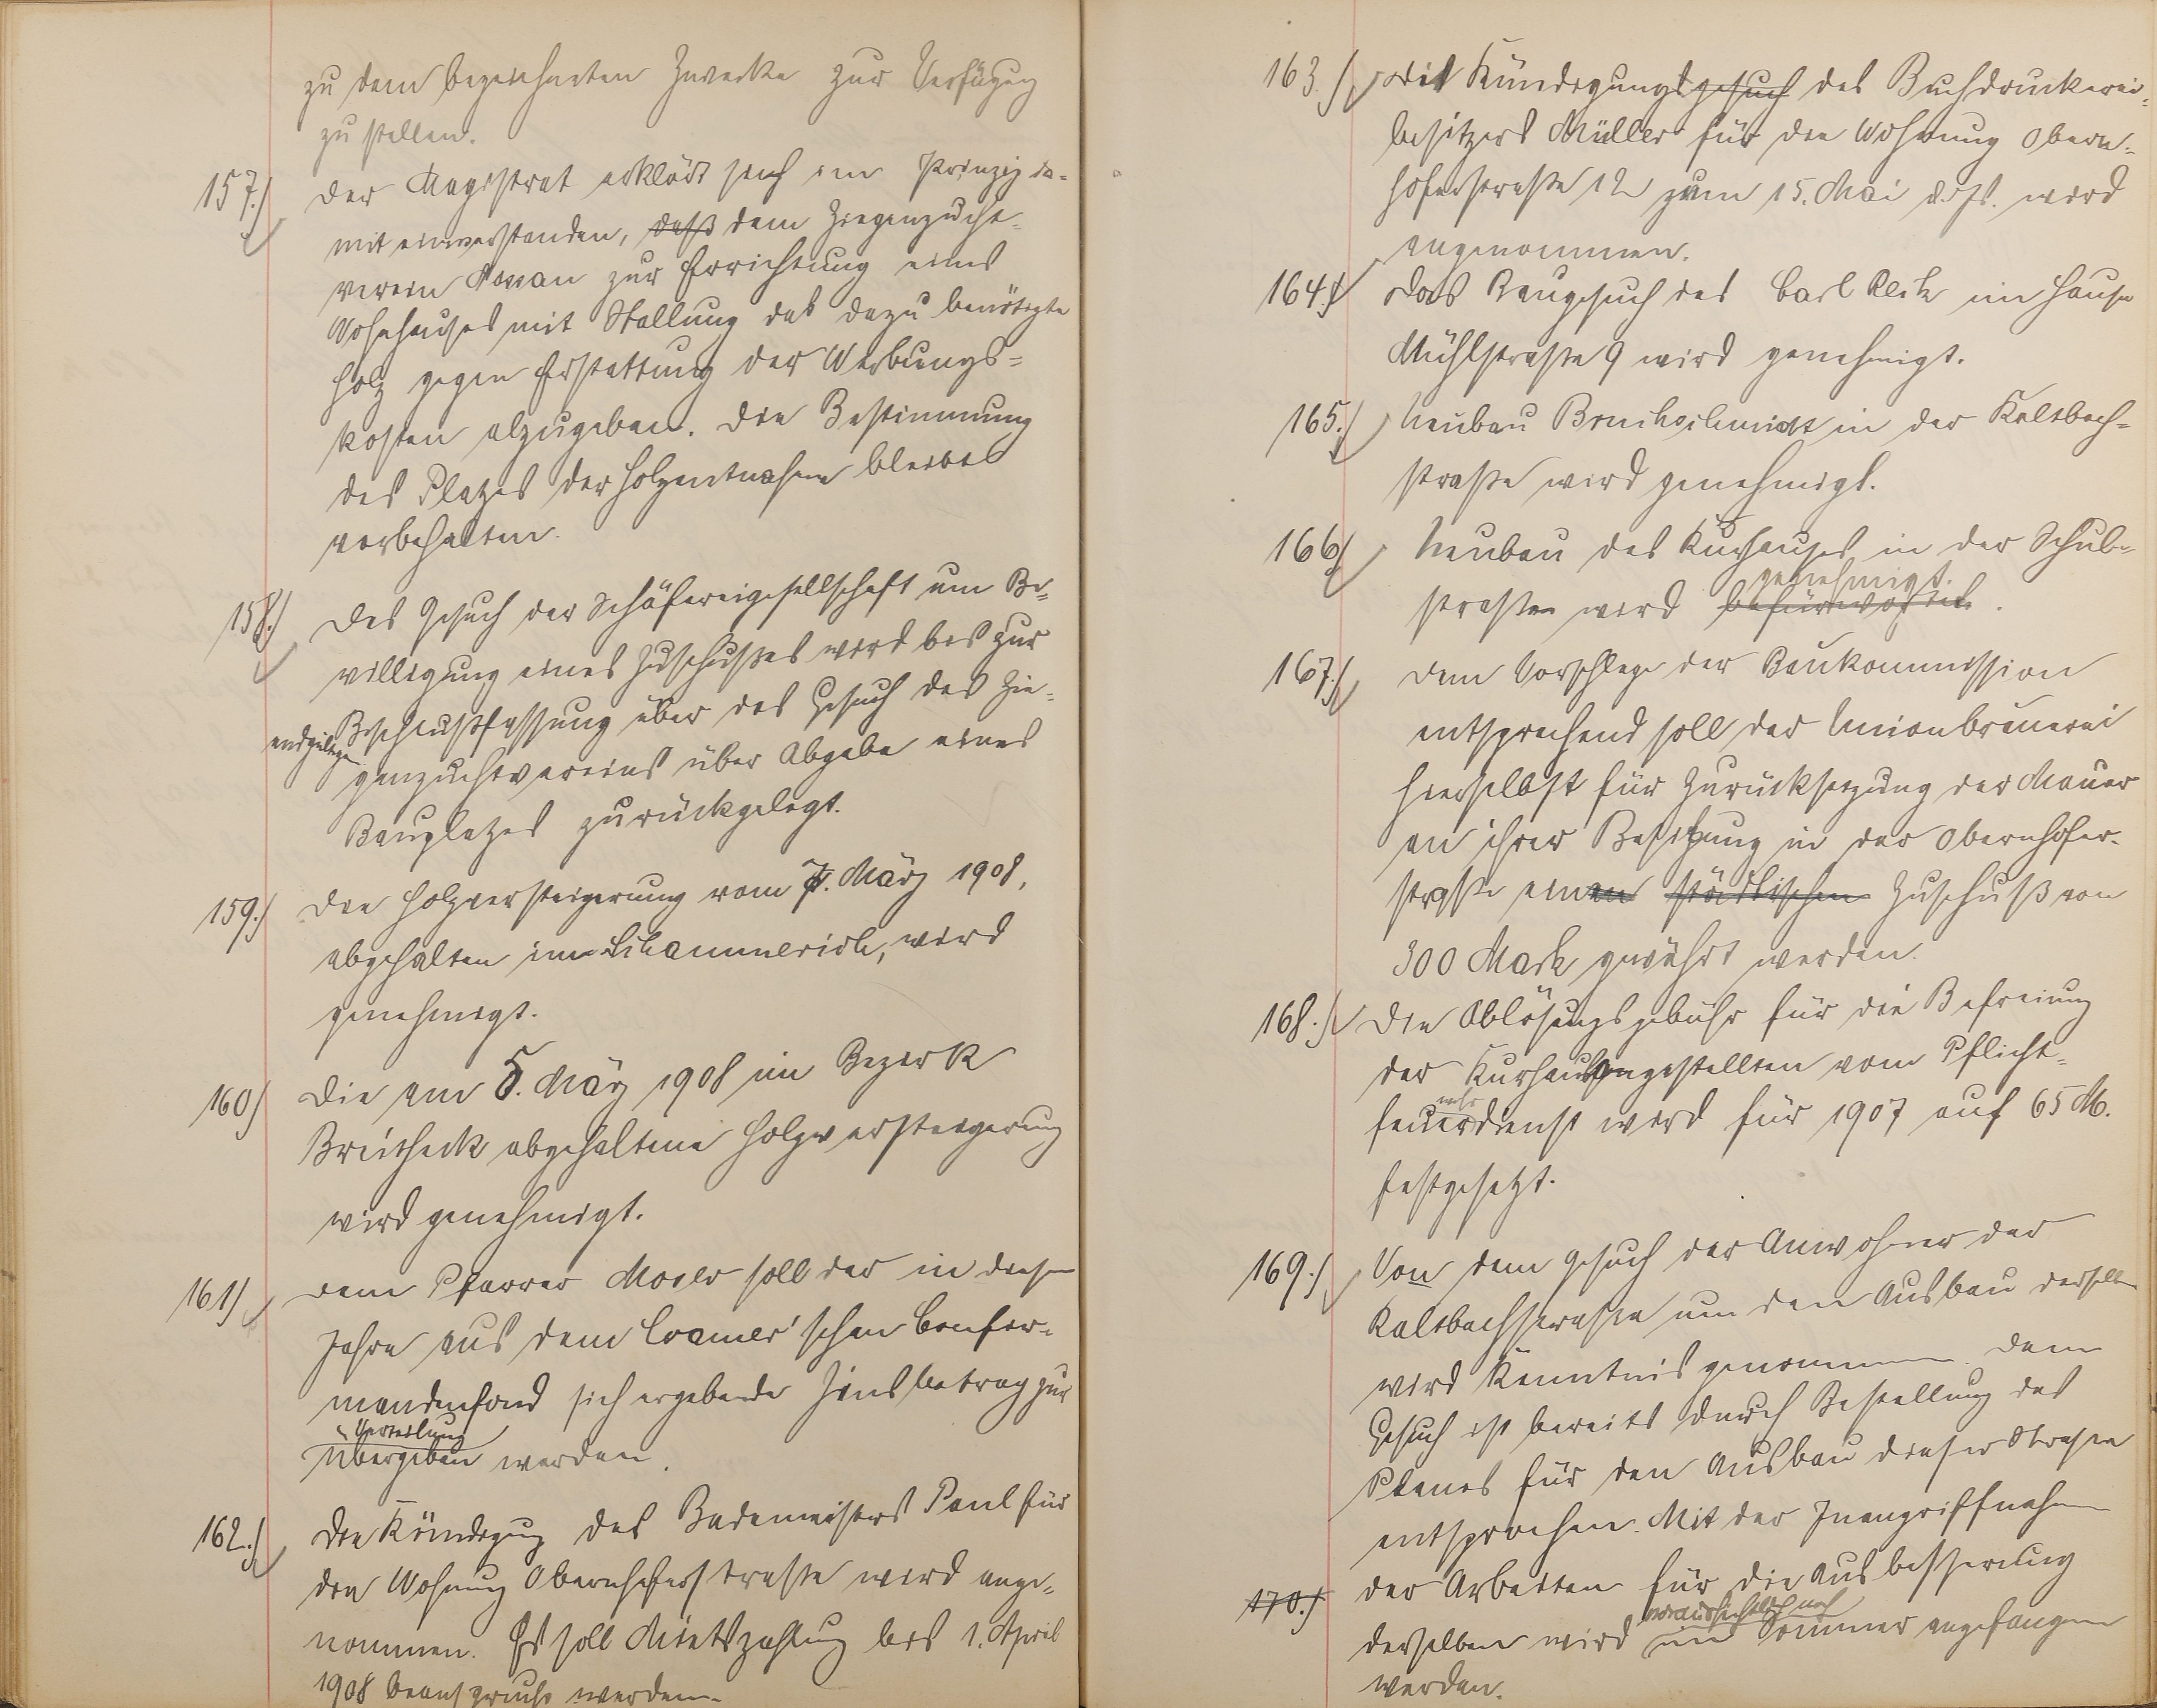 zu dem bezeichneten Zwecke zur Verfügung
zu stellen.
157.) Der Magistrat erklärt sich im Prinzip da-
mit einverstanden, daß dem Ziegenzucht-
verein Nassau zur Errichtung eines
Wohnhauses mit Stallung das dazu benötigte
Holz gegen Erstattung der Werbungs-
kosten abzugeben. Die Bestimmung
des Platzes der Holzentnahme bleibt
vorbehalten.
158.) Das Gesuch der Schäfereigesellschaft um Be-
willigung eines Zuschußes wird bis zur
endgültige Beschlußfassung über das Gesuch des Zie-
genzuchtvereins über Abgabe eines
Bauplatzes zurückgelegt.
159.) Die Holzversteigerung vom 7. März 1908,
abgehalten im wird
genehmigt.
160) Die am 5. März 1908 im Bezirk
abgehaltene Holzversteigerung
wird genehmigt.
161) Dem Pfarrer Moser soll der in diesem
Jahre aus dem Cramer'schen Confir-
mandenfond sich ergebende Zinsbetrag zur
Verteilung
übergeben werden.
162.) Die Kündigung des Bademeisters Paul für
die Wohnung Obernhoferstraße wird ange-
nommen. Es soll Mietszahlung bis 1. April
1908 beansprucht werden.
163.) Die Kündigungsgesuch des Buchdruckerei-
besitzers Müller für die Wohnung Obern-
hoferstraße 12 zum 15. Mai d. Js. wird
angenommen.
164.) Das Baugesuch des Carl im Hause
Mühlstraße 9 wird genehmigt.
165.) Neubau in der Kaltbach-
straße wird genehmigt.
166) Neubau des Kurhauses in der Schul-
genehmigt.
straße wird befürwortet.
167.) Dem Vorschlage der Baukommission
entsprechend soll der Unionbrauerei
hierselbst für Zurücksetzung der Mauer
an ihrer Besitzung in der Obernhofer-
straße einen städtischen Zuschuß von
300 Mark gewährt werden.
168.) Die Ablösungsgebühr für die Befreiung
der Kurhausangestellten vom Pflicht-
wehr
feuerdienst wird für 1907 auf 65 M.
festgesetzt.
169.) Von dem Gesuch der Anwohner der
Kaltbachstraße um den Ausbau derselben
wird Kenntnis genommen. Dem
Gesuch ist bereits durch Bestellung des
Planes für den Ausbau dieser Straße
entsprochen. Mit der Inangriffnahme
170.) der Arbeiten für die Ausbesserung
voraussichtlich noch
derselben wird im Sommer angefangen
werden.